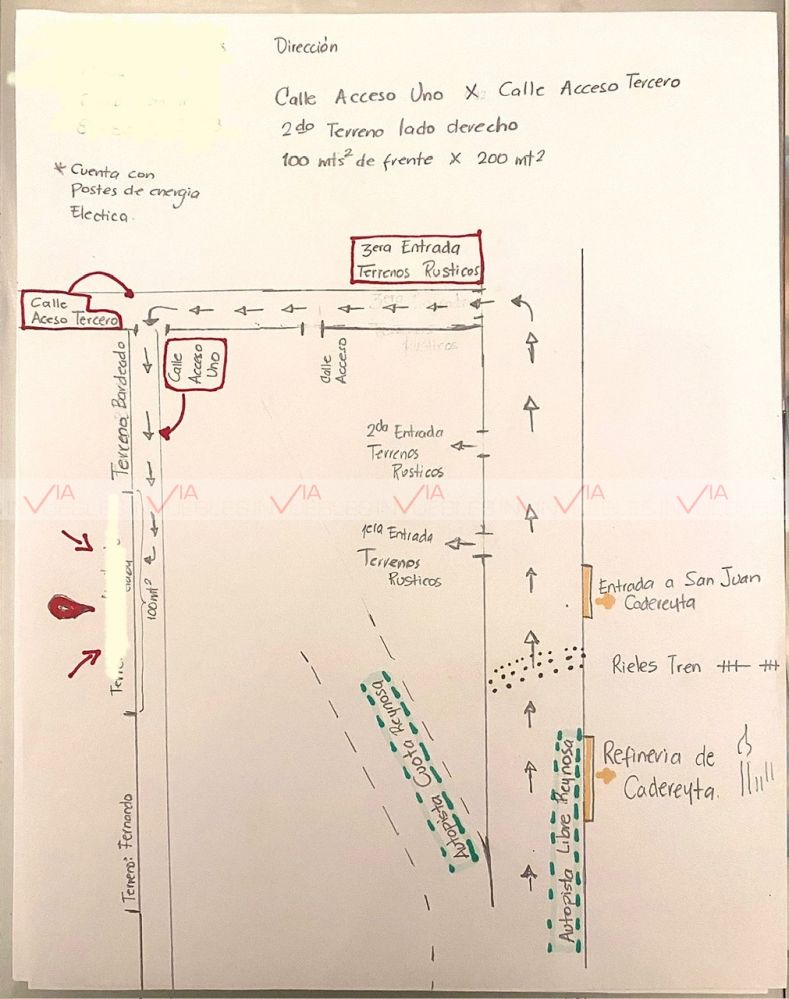 Dirección
Calle Acceso Uno X Calle Acceso Tercero
2do Terreno lado derecho
100 mts² de frente X 200 mt2
* Cuenta con
Postes de energia
Electica.
3era Entrada
Terrenos Rusticos
Calle
Aceso Tercero
Calle
Acceso
Uno
Calle
Acceso
Terreno Bardeado
2da Entrada
Terrenos
Rusticos
VIA VIA VIA VIA VIA VIA
1era Entrada
Terrenos
Rusticos
100mt²
Entrada a San Juan
Cadereyta
Rieles Tren
Autopista Cuota Reynosa
Refineria de
Cadereyta.
Autopista Libre Reynosa
Terreno: Fernando